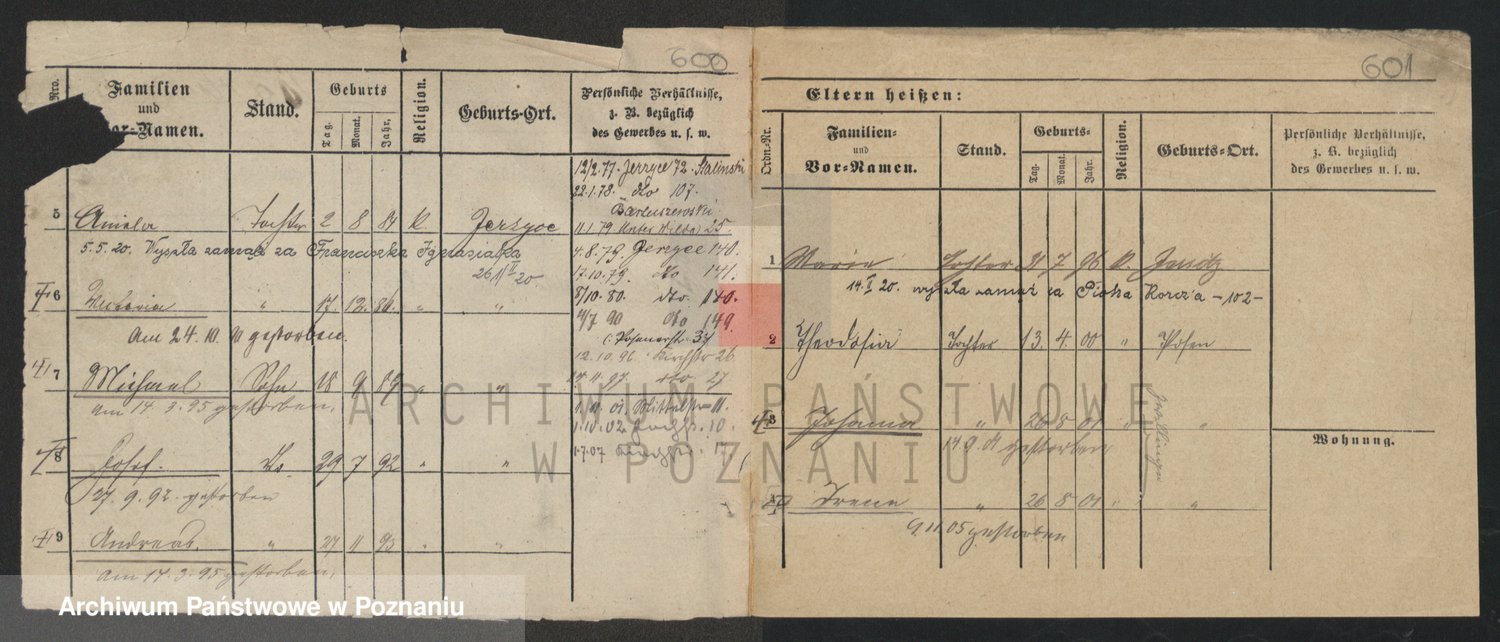 600
Nro.
Familien
und
Vor-Namen.
Stand.
Geburts
Tag.
Monat.
Jahr.
Religion.
Geburts-Ort.
Persönliche Verhältnisse,
z. B. bezüglich
des Gewerbes u. s. w.
12/2.77. Jerzyce 72. Stalinski
22.1.78. dto 107.
Bartuszewski
11.1.79 Unter Wilda 25.
4.8.79. Jerzyce 140.
17.10.79. dto 141.
8/10.80. dto 140.
4/7 90 dto 149.
Posenerstr. 37
12.10.96. Kirchstr 26
14.11.97. dto 27
1.11.01. Mittelstr 11.
1.10.02 10.
1.7.07 17
5 Aniela Tochter 2 8 84 K. Jerzyce
5.5.20. Wyszła zamąż za Franciszka Ignasiaka
26 II 20.
6 Victoria " 17. 12. 86. " "
Am 24.10. gestorben.
7 Michael Sohn 18 9 89 " "
am 14.3.95 gestorben.
8 Josef. do. 29 7 92 " "
27.9.92. gestorben
9 Andreas. " 27 11 93 " "
am 14.3.95 gestorben.
601
Eltern heißen:
Ordn-Nr.
Familien-
und
Vor-Namen.
Stand.
Geburts-
Tag.
Monat.
Jahr.
Religion.
Geburts-Ort.
Persönliche Verhältnisse,
z. B. bezüglich
des Gewerbes u. s. w.
1 Marie Tochter 21 7 96 K.
14.II 20. wyszła zamąż za Piotra Korcza -102-
2 Theodosia Tochter 13. 4. 00 " Posen
3 Johanna " 26 8 01 " "
gestorben
Zwillinge
Wohnung.
Irena " 26 8 01 " "
9.11.05 gestorben
ARCHIWUM PAŃSTWOWE
W POZNANIU
Archiwum Państwowe w Poznaniu